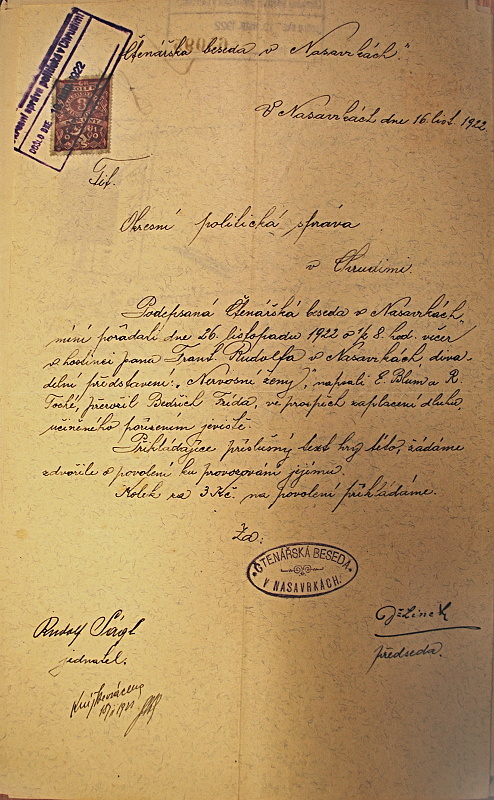 „Čtenářská beseda v Nasavrkách".
V Nasavrkách dne 16. list. 1922.
DOŠLO DNE 1922
Tit.
Okresní politická správa
v Chrudimi.
Podepsaná Čtenářská beseda v Nasavrkách,
míní pořádati dne 26. listopadu 1922 o ½ 8. hod. večer
v hostinci pana Frant. Rudolfa v Nasavrkách diva-
delní představení: „Nervosní ženy", napsali E. Blum a R.
Toché, přeložil Bedřich Frída, ve prospěch zaplacení dluhu,
učiněného pořízením jeviště.
Předkládajíce příslušný text hry této, žádáme
zdvořile o povolení ku provozování jejímu.
Kolek za 3 Kč. na povolení přikládáme.
Za:
ČTENÁŘSKÁ BESEDA
V NASAVRKÁCH.
Rudolf Ságl
jednatel.
předseda.